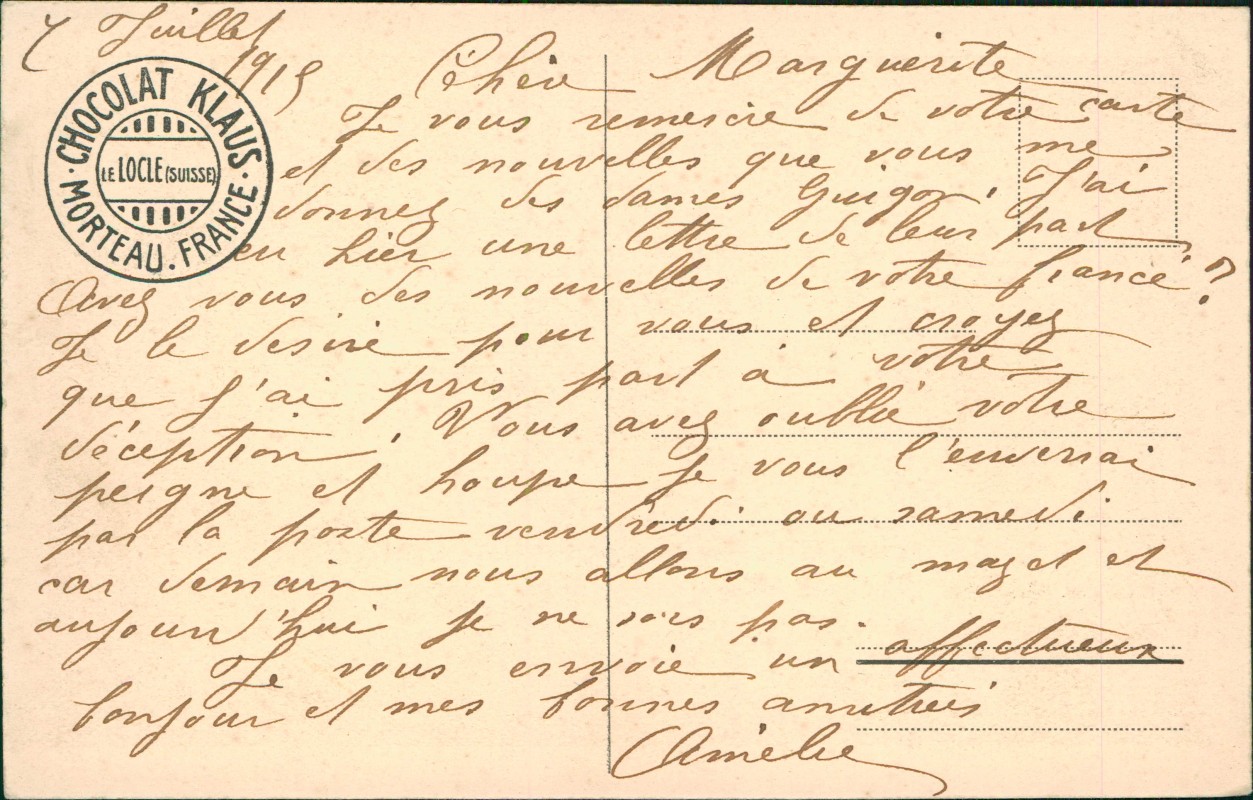 7 Juillet
1915
CHOCOLAT KLAUS
LE LOCLE (SUISSE)
MORTEAU. FRANCE
Chère Marguerite
Je vous remercie de votre carte
et des nouvelles que vous me
donnez des dames Guigon, J'ai
eu hier une lettre de leur part
Avez vous des nouvelles de votre fiancé ?
Je le désire pour vous et croyez
que j'ai pris part à votre
déception. Vous avez oublié votre
peigne et houpe je vous l'enverrai
par la poste vendredi ou samedi
car demain nous allons au mazet et
aujourd'hui je ne sors pas.
Je vous envoie un affectueux
bonjour et mes bonnes amitiés
Amélie